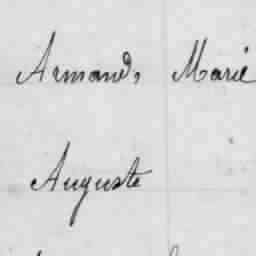 Armand, Marie
Auguste